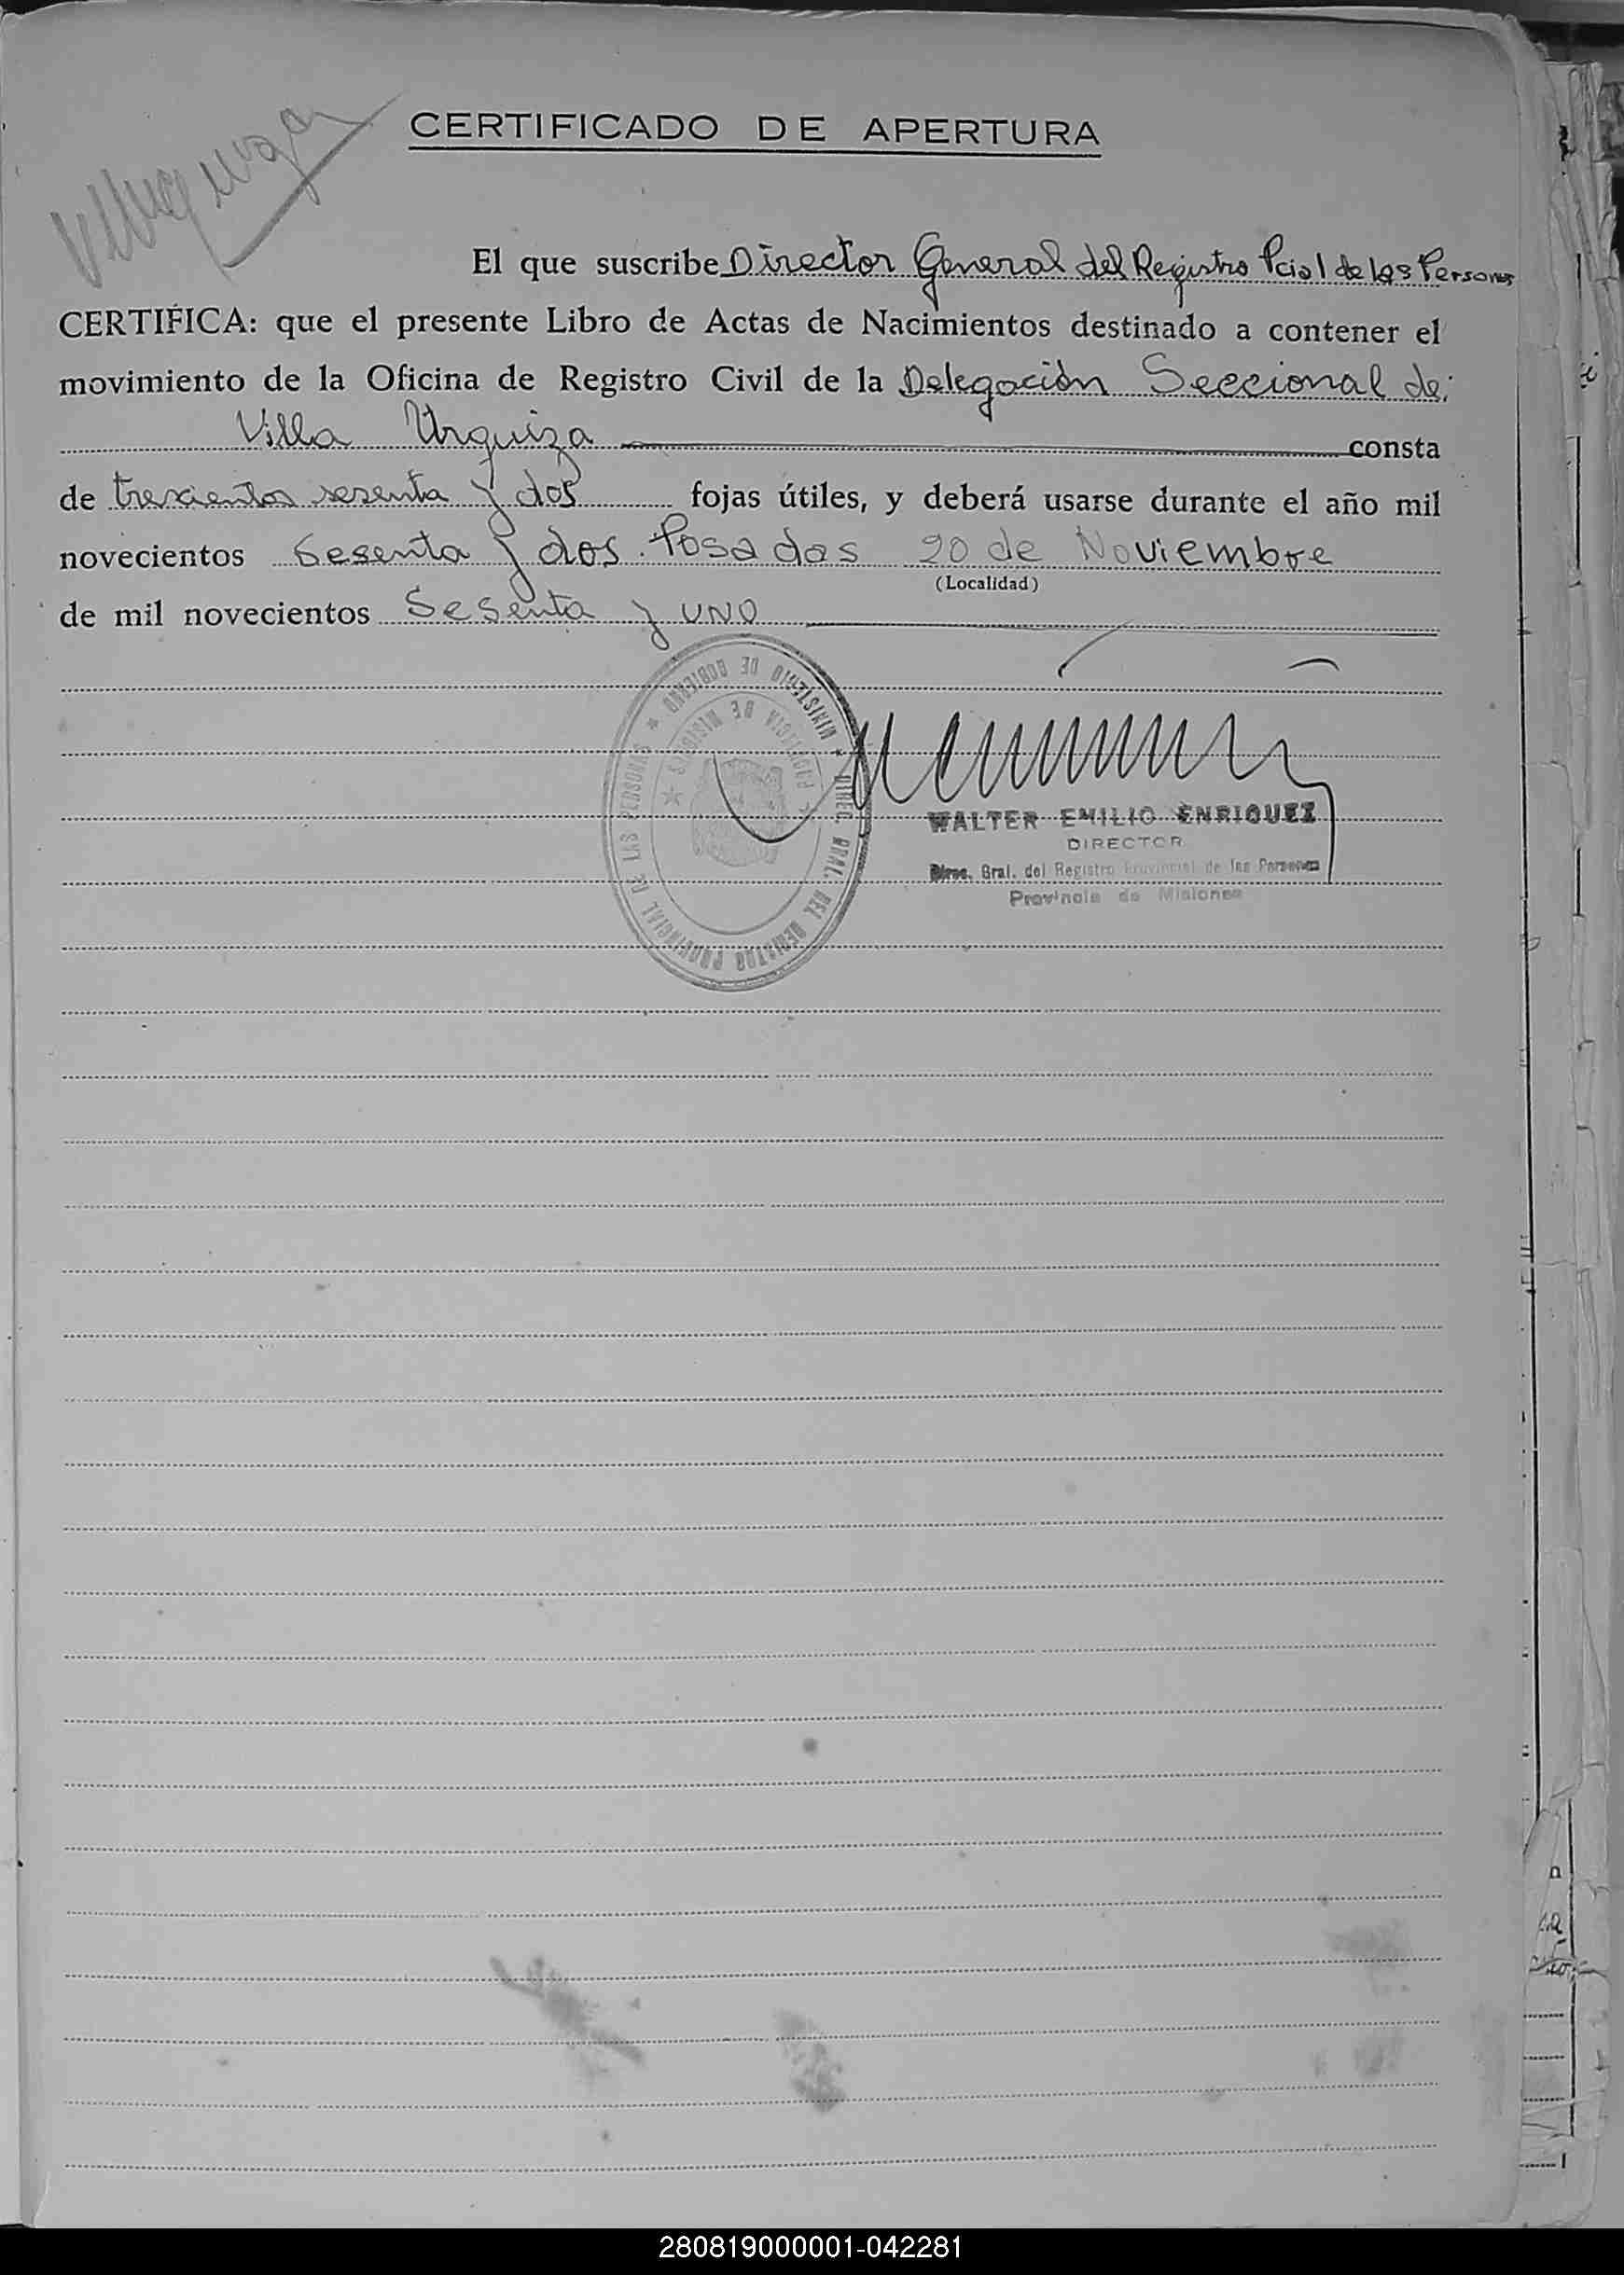 CERTIFICADO DE APERTURA
El que suscribe Director General del Registro Pcial de las Personas
CERTIFICA: que el presente Libro de Actas de Nacimientos destinado a contener el
movimiento de la Oficina de Registro Civil de la Delegación Seccional de:
Villa Urquiza consta
de trescientos sesenta y dos fojas útiles, y deberá usarse durante el año mil
novecientos Sesenta y dos. Posadas 20 de Noviembre
(Localidad)
de mil novecientos Sesenta y uno
MINISTERIO DE GOBIERNO
DIREC. GRAL. DEL REGISTRO PROVINCIAL DE LAS PERSONAS
PROVINCIA DE MISIONES
WALTER EMILIO ENRIQUEZ
DIRECTOR
Direc. Gral. del Registro Provincial de las Personas
Provincia de Misiones
280819000001-042281